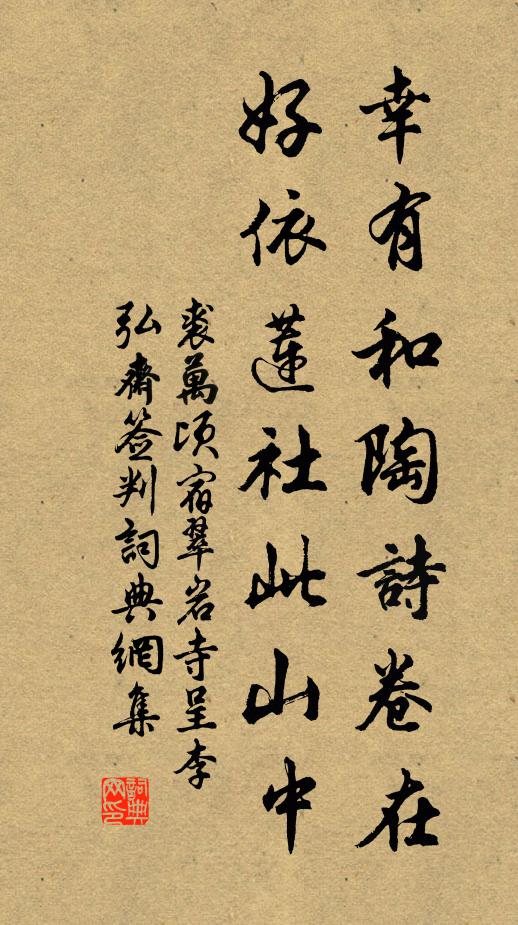 幸有和陶詩卷在
好依蓮社此山中
裘萬頃宿翠岩寺呈李
弘齋签判詞典網集
詞典
网印